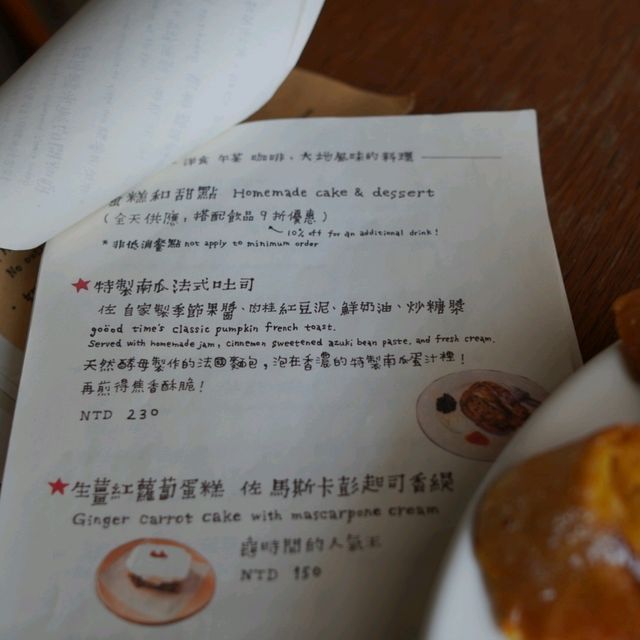 洋食 午茶 咖啡、大地風味的料理
蛋糕和甜點 Homemade cake & dessert
(全天供應,搭配飲品9折優惠)
10% off for an additional drink!
* 非低消餐點 not apply to minimum order
★特製南瓜法式吐司
佐 自家製季節果醬、肉桂紅豆泥、鮮奶油、炒糖漿
goööd time's classic pumpkin french toast.
Served with homemade jam, cinnemon sweetened azuki bean paste, and fresh cream.
天然酵母製作的法國麵包,泡在香濃的特製南瓜蛋汁裡!
再煎得焦香酥脆!
NTD 230
★生薑紅蘿蔔蛋糕 佐 馬斯卡彭起司香緹
Ginger carrot cake with mascarpone cream
時間的人氣王
NTD 150